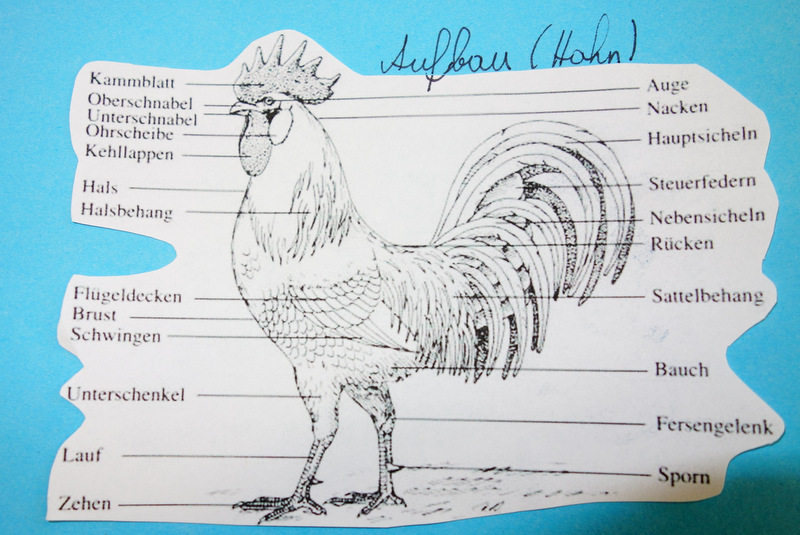 Aufbau (Hahn)
Kammblatt
Oberschnabel
Unterschnabel
Ohrscheibe
Kehllappen
Hals
Halsbehang
Flügeldecken
Brust
Schwingen
Unterschenkel
Lauf
Zehen
Auge
Nacken
Hauptsicheln
Steuerfedern
Nebensicheln
Rücken
Sattelbehang
Bauch
Fersengelenk
Sporn